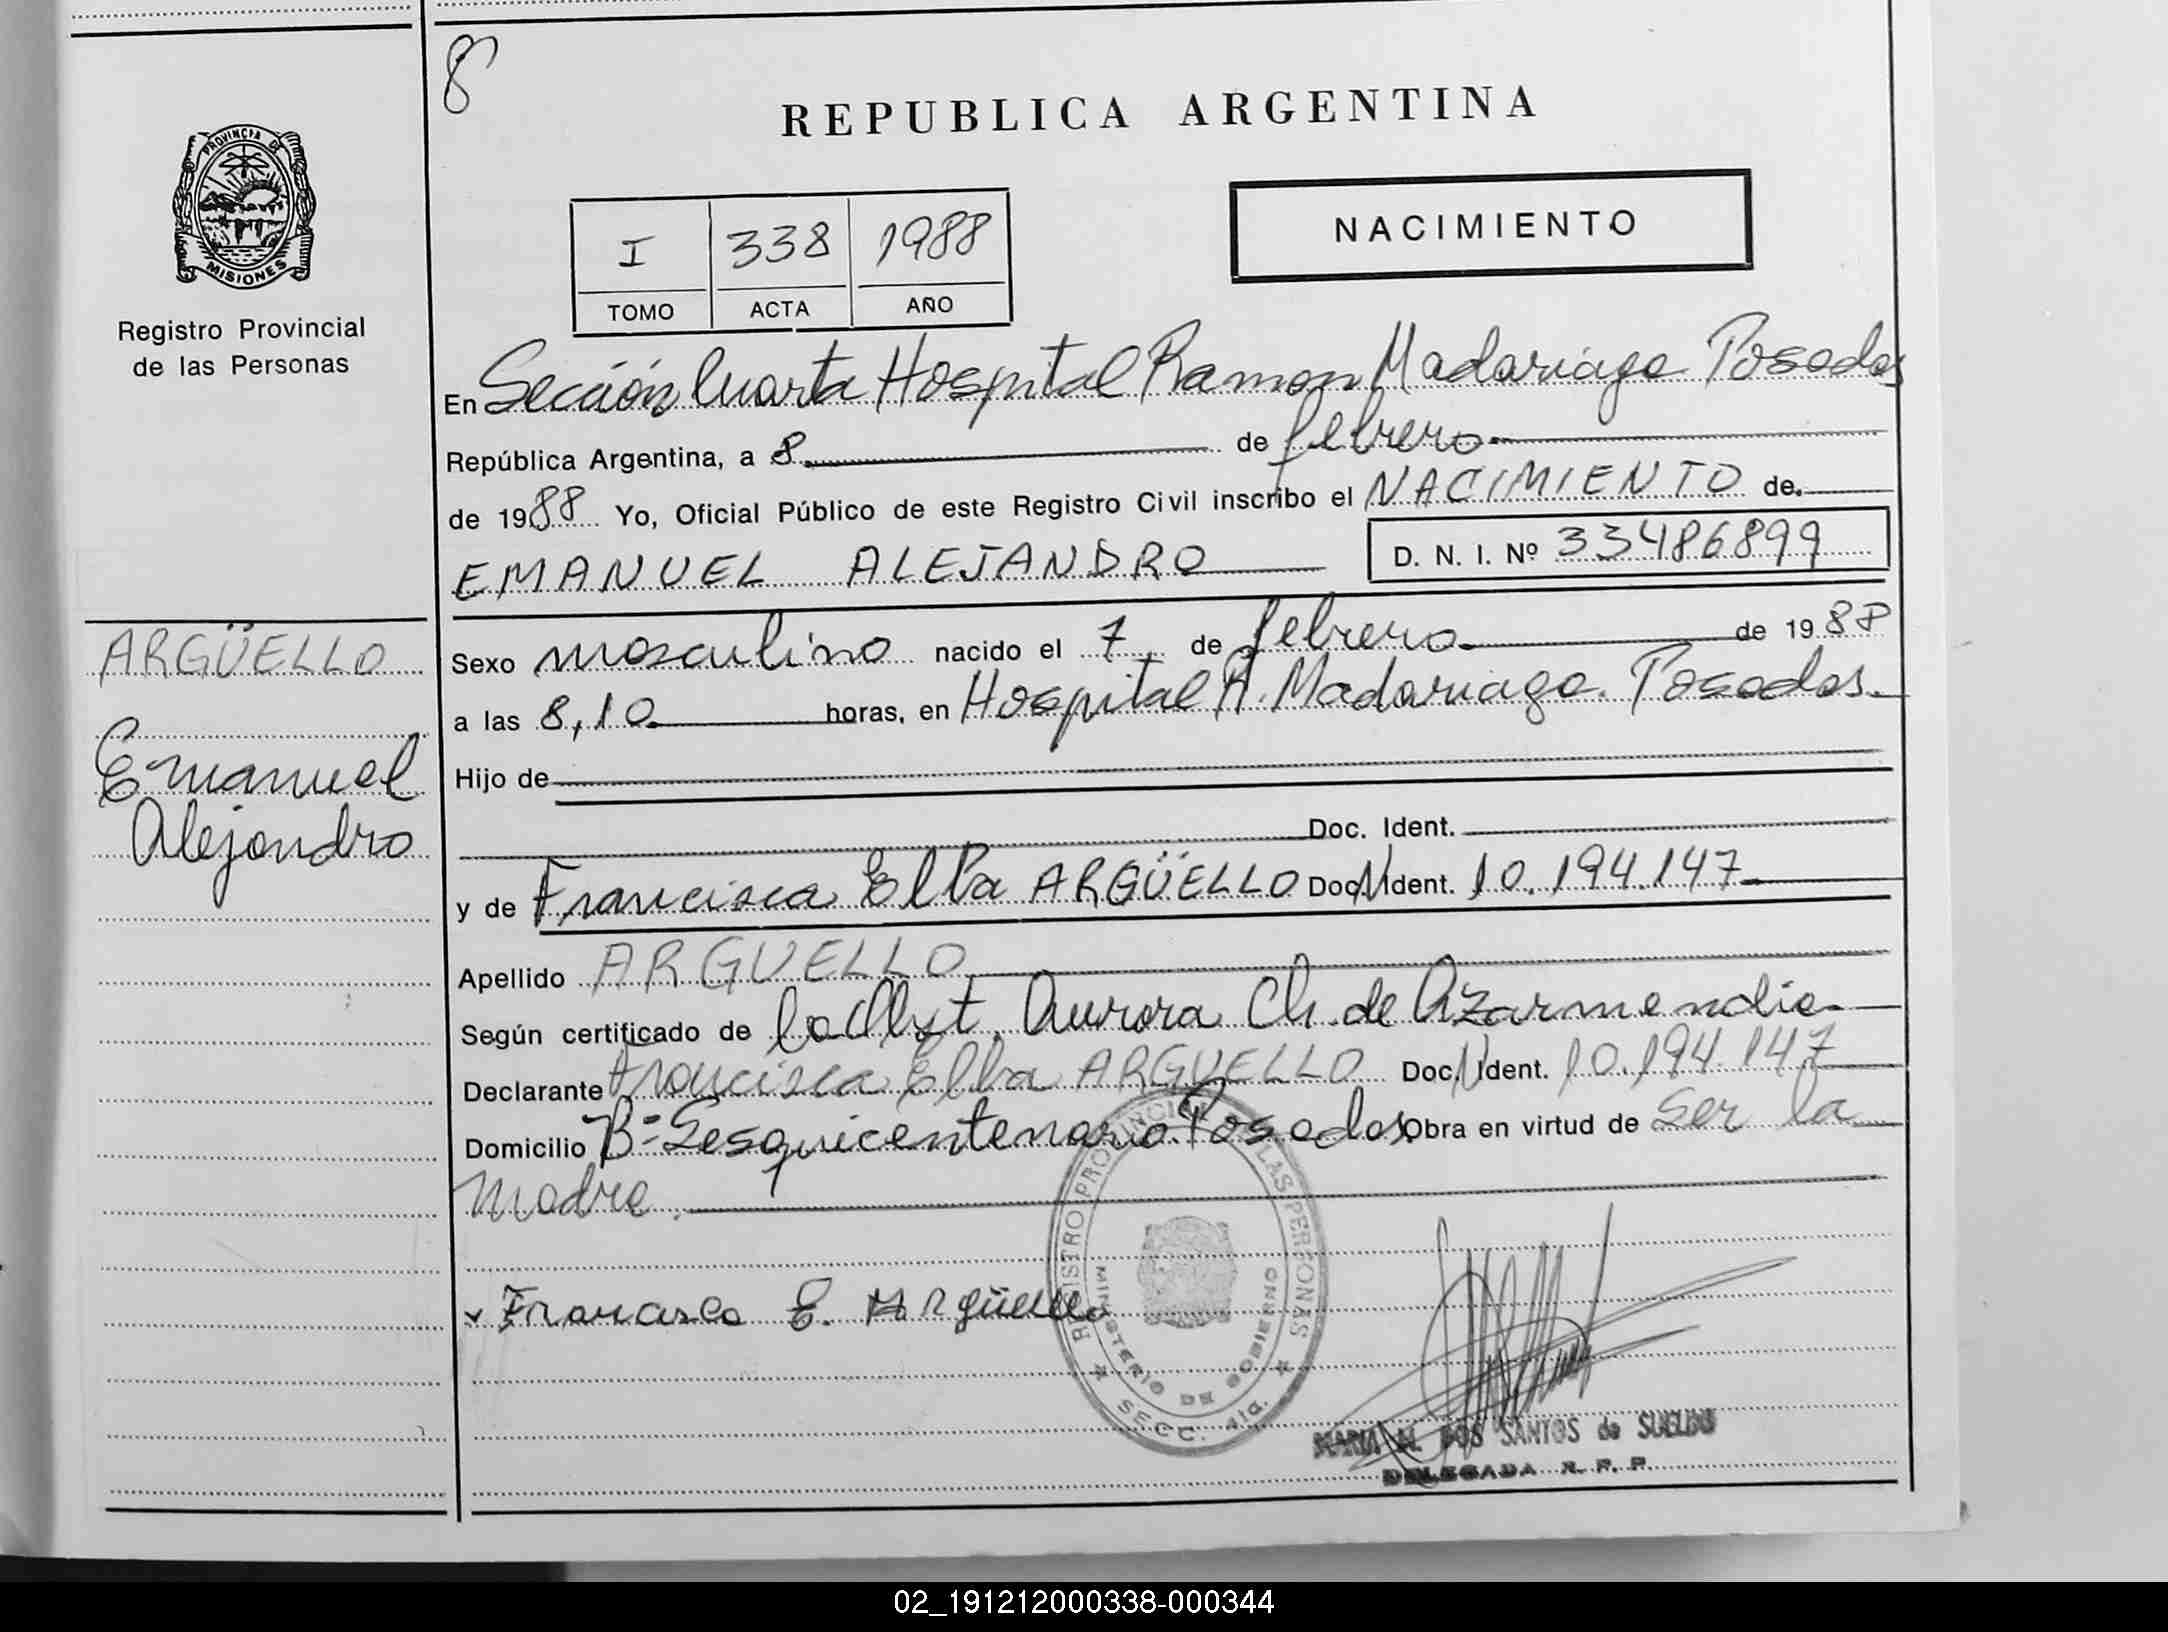 8
REPUBLICA ARGENTINA
PROVINCIA DE
MISIONES
Registro Provincial
de las Personas
I 338 1988
TOMO ACTA AÑO
NACIMIENTO
En Sección Cuarta Hospital Ramon Madariaga Posadas
República Argentina, a 8 de febrero
de 1988 Yo, Oficial Público de este Registro Civil inscribo el NACIMIENTO de
EMANUEL ALEJANDRO D. N. I. Nº 33486899
ARGÜELLO
Emanuel
Alejandro
Sexo masculino nacido el 7 de febrero de 1988
a las 8,10 horas, en Hospital R. Madariaga. Posadas.
Hijo de
Doc. Ident.
y de Francisca Elba ARGÜELLO Doc. N Ident. 10.194.147
Apellido ARGUELLO
Según certificado de Obst. Aurora Ch. de Azarmendia
Declarante Francisca Elba ARGUELLO Doc. N Ident. 10.194.147
Domicilio Bº Sesquicentenario. Posadas Obra en virtud de ser la
madre.
Francisca E. Argüello
REGISTRO PROVINCIAL DE LAS PERSONAS
MINISTERIO DE GOBIERNO
SECC. 4ta.
MARIA DOS SANTOS de SUELDO
DELEGADA R. P. P.
02_191212000338-000344